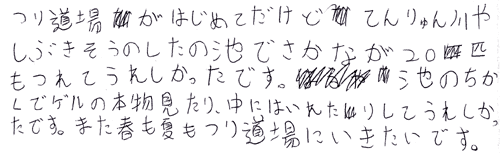 つり道場がはじめてだけど てんりゅん川や
しぶきそうのしたの池でさかなが20匹
もつれてうれしかったです。池のちか
くでゲルの本物見たり、中にはいれたりしてうれしかっ
たです。また春も夏もつり道場にいきたいです。